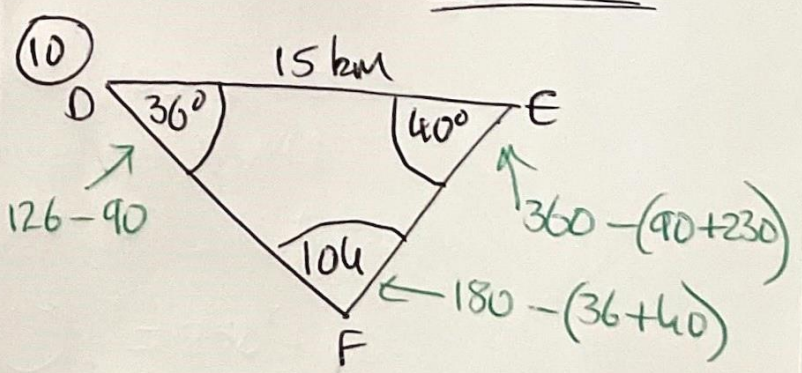 10
15 km
D
36°
40°
E
126-90
360-(90+230)
104
180-(36+40)
F